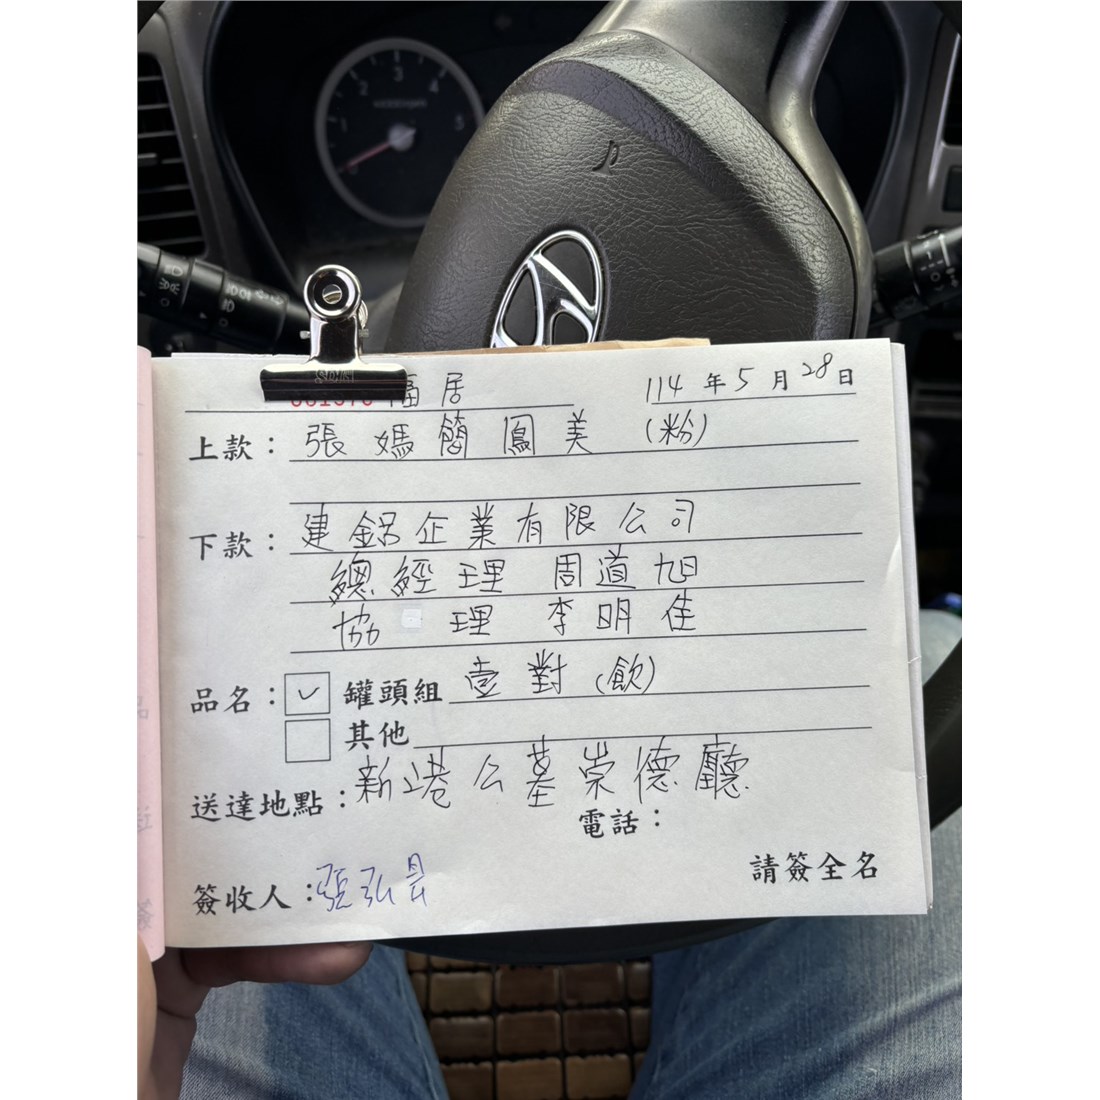 福居
114年5月28日
上款：張媽簡鳳美（粉）
下款：建鋁企業有限公司
總經理 周道旭
協 理 李明佳
品名：✓ 罐頭組 壹對（飲）
其他
送達地點：新港公墓崇德廳
電話：
請簽全名
簽收人：張弘昌